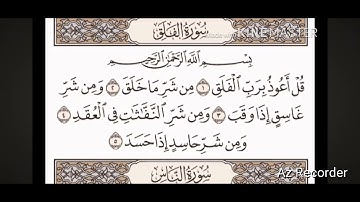 سُورَةُ الفَلَقِ
KINEMASTER
بِسْمِ اللَّهِ الرَّحْمَٰنِ الرَّحِيمِ
قُلْ أَعُوذُ بِرَبِّ الْفَلَقِ ١ مِن شَرِّ مَا خَلَقَ ٢ وَمِن شَرِّ
غَاسِقٍ إِذَا وَقَبَ ٣ وَمِن شَرِّ النَّفَّاثَاتِ فِي الْعُقَدِ ٤
وَمِن شَرِّ حَاسِدٍ إِذَا حَسَدَ ٥
سُورَةُ النَّاسِ
Az Recorder